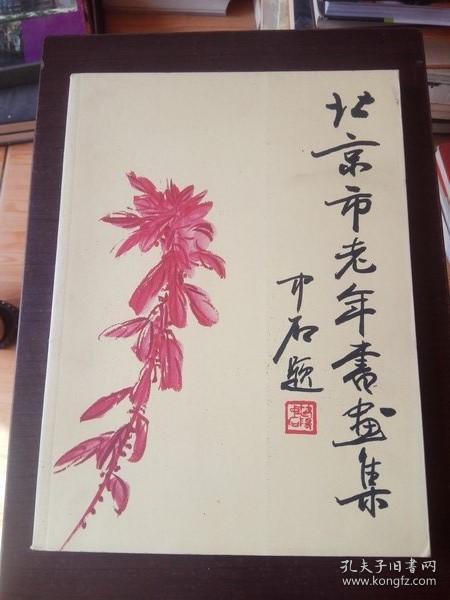 北京市老年書画集
中石题
孔夫子旧书网
www.kongfz.com